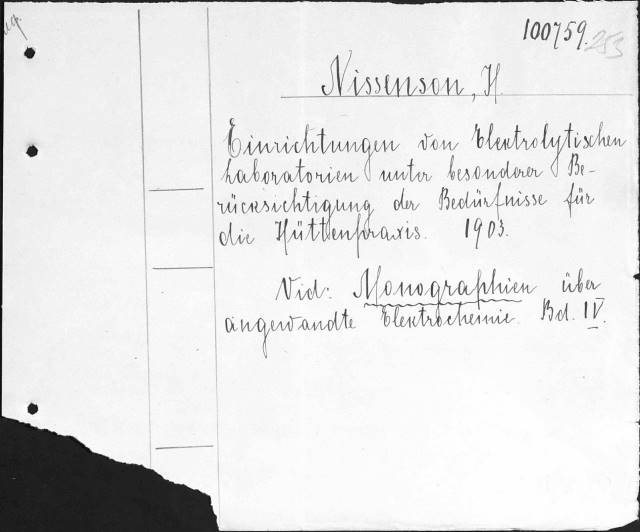 ug.
100759.
253
Nissenson, H.
Einrichtungen von Elektrolytischen
Laboratorien unter besonderer Be-
rücksichtigung der Bedürfnisse für
die Hüttenpraxis. 1903.
Vid: Monographien über
angewandte Elektrochemie. Bd. IV.